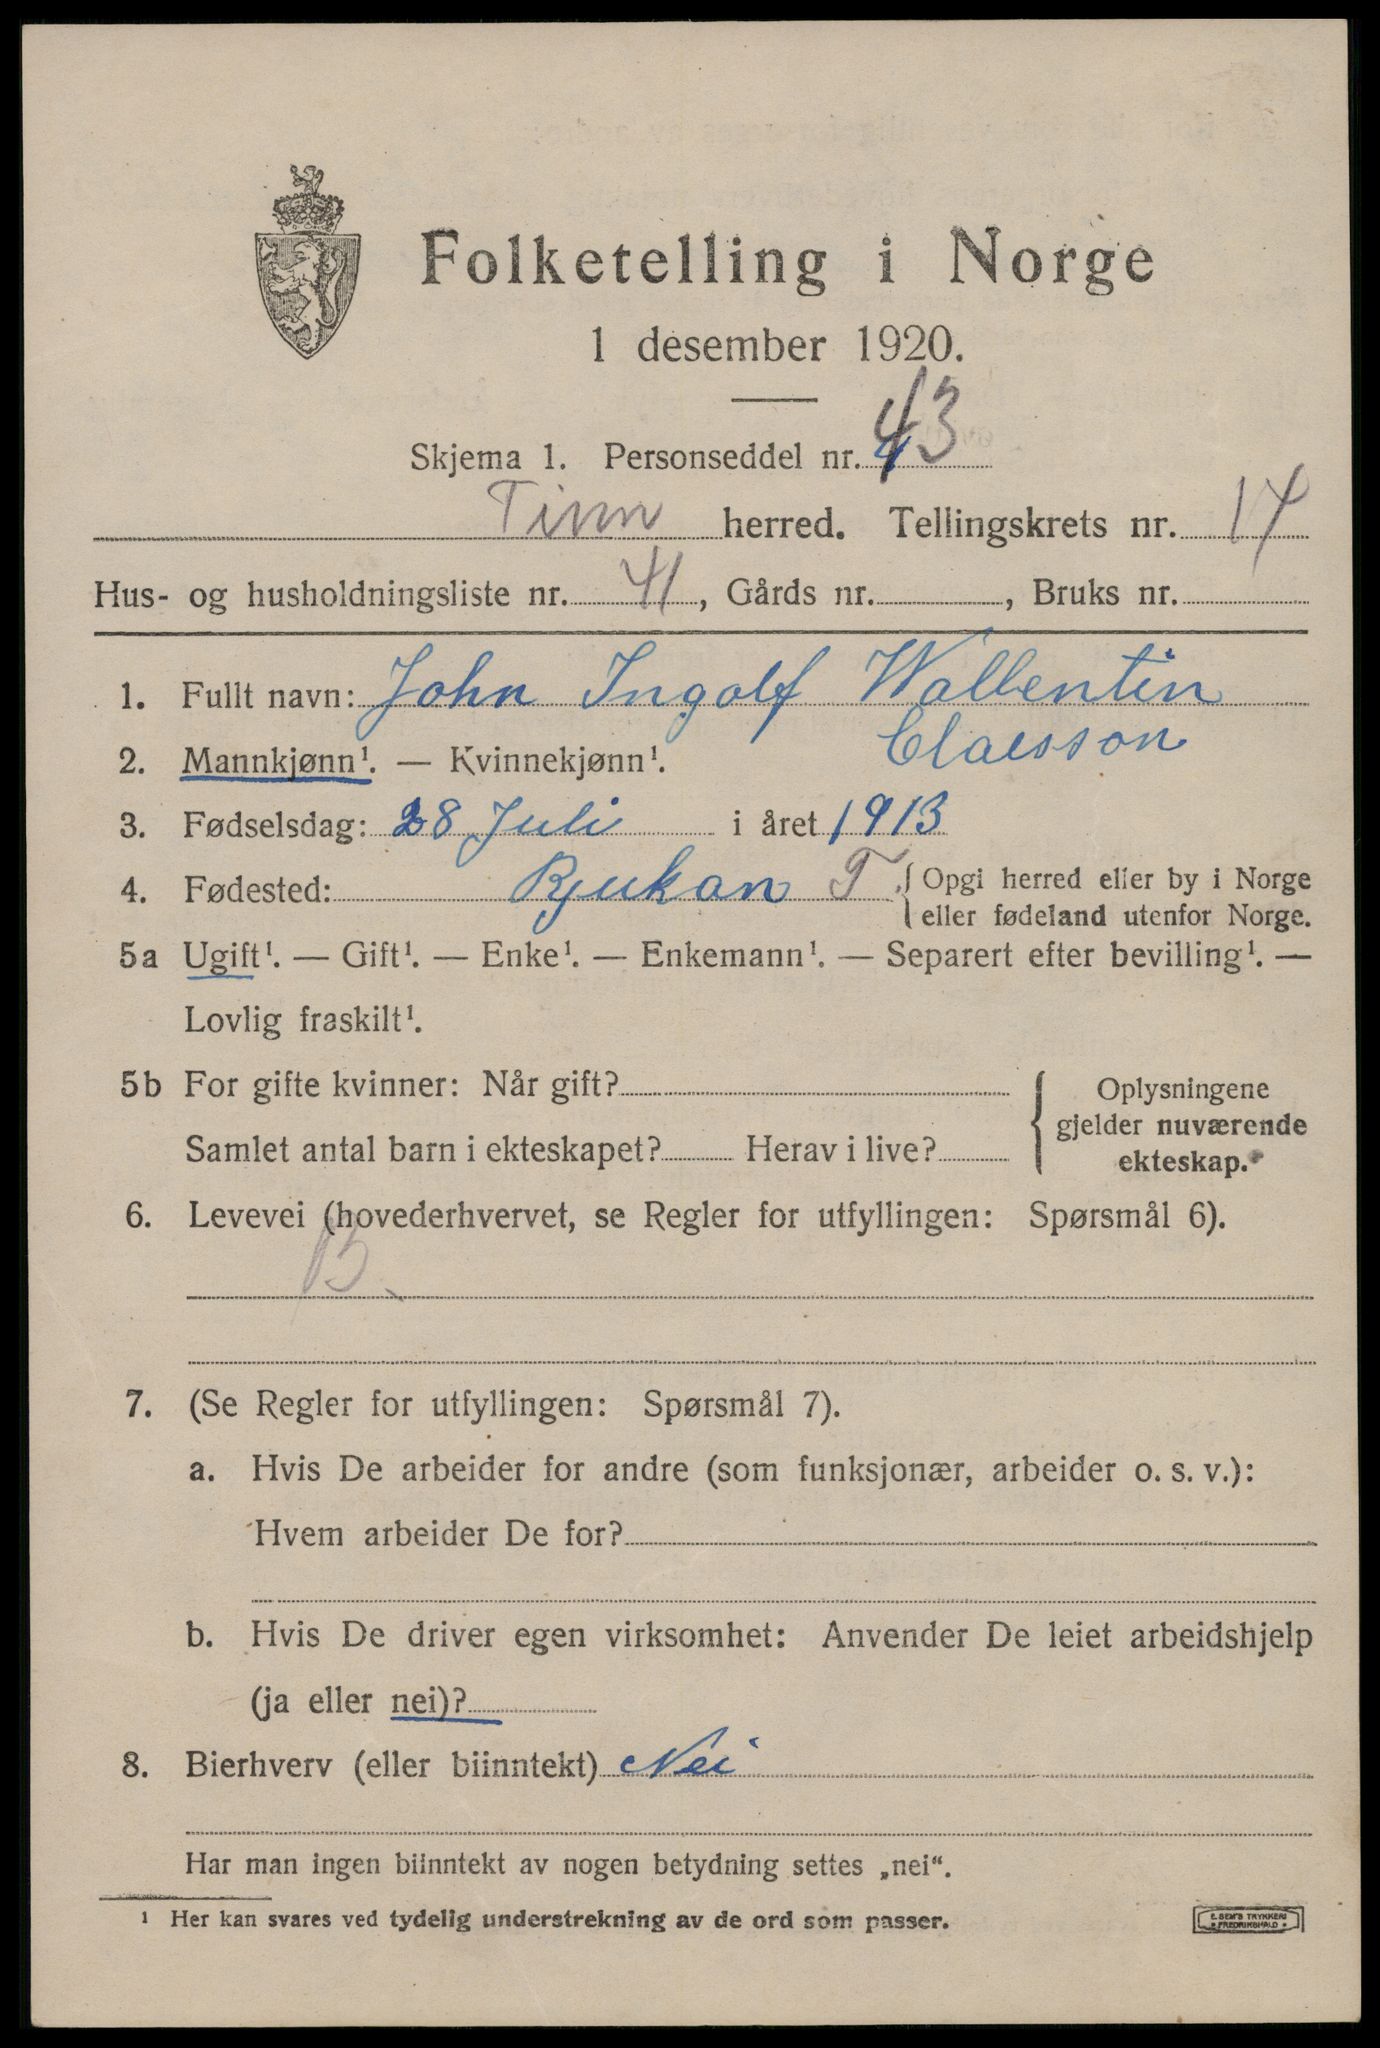 Folketelling i Norge
1 desember 1920.
Skjema 1. Personseddel nr. 43
Tinn herred. Tellingskrets nr. 14
Hus- og husholdningsliste nr. 41, Gårds nr. , Bruks nr.
1. Fullt navn: John Ingolf Wallentin
Claesson
2. Mannkjønn¹. — Kvinnekjønn¹.
3. Fødselsdag: 28 Juli i året 1913
4. Fødested: Rjukan T. Opgi herred eller by i Norge
eller fødeland utenfor Norge.
5a Ugift¹. — Gift¹. — Enke¹. — Enkemann¹. — Separert efter bevilling¹. —
Lovlig fraskilt¹.
5b For gifte kvinner: Når gift?
Samlet antal barn i ekteskapet? Herav i live?
Oplysningene
gjelder nuværende
ekteskap.
6. Levevei (hovederhvervet, se Regler for utfyllingen: Spørsmål 6).
B.
7. (Se Regler for utfyllingen: Spørsmål 7).
a. Hvis De arbeider for andre (som funksjonær, arbeider o. s. v.):
Hvem arbeider De for?
b. Hvis De driver egen virksomhet: Anvender De leiet arbeidshjelp
(ja eller nei)?
8. Bierhverv (eller biinntekt) Nei
Har man ingen biinntekt av nogen betydning settes „nei“.
¹ Her kan svares ved tydelig understrekning av de ord som passer.
E. SEM'S TRYKKERI
FREDRIKSHALD